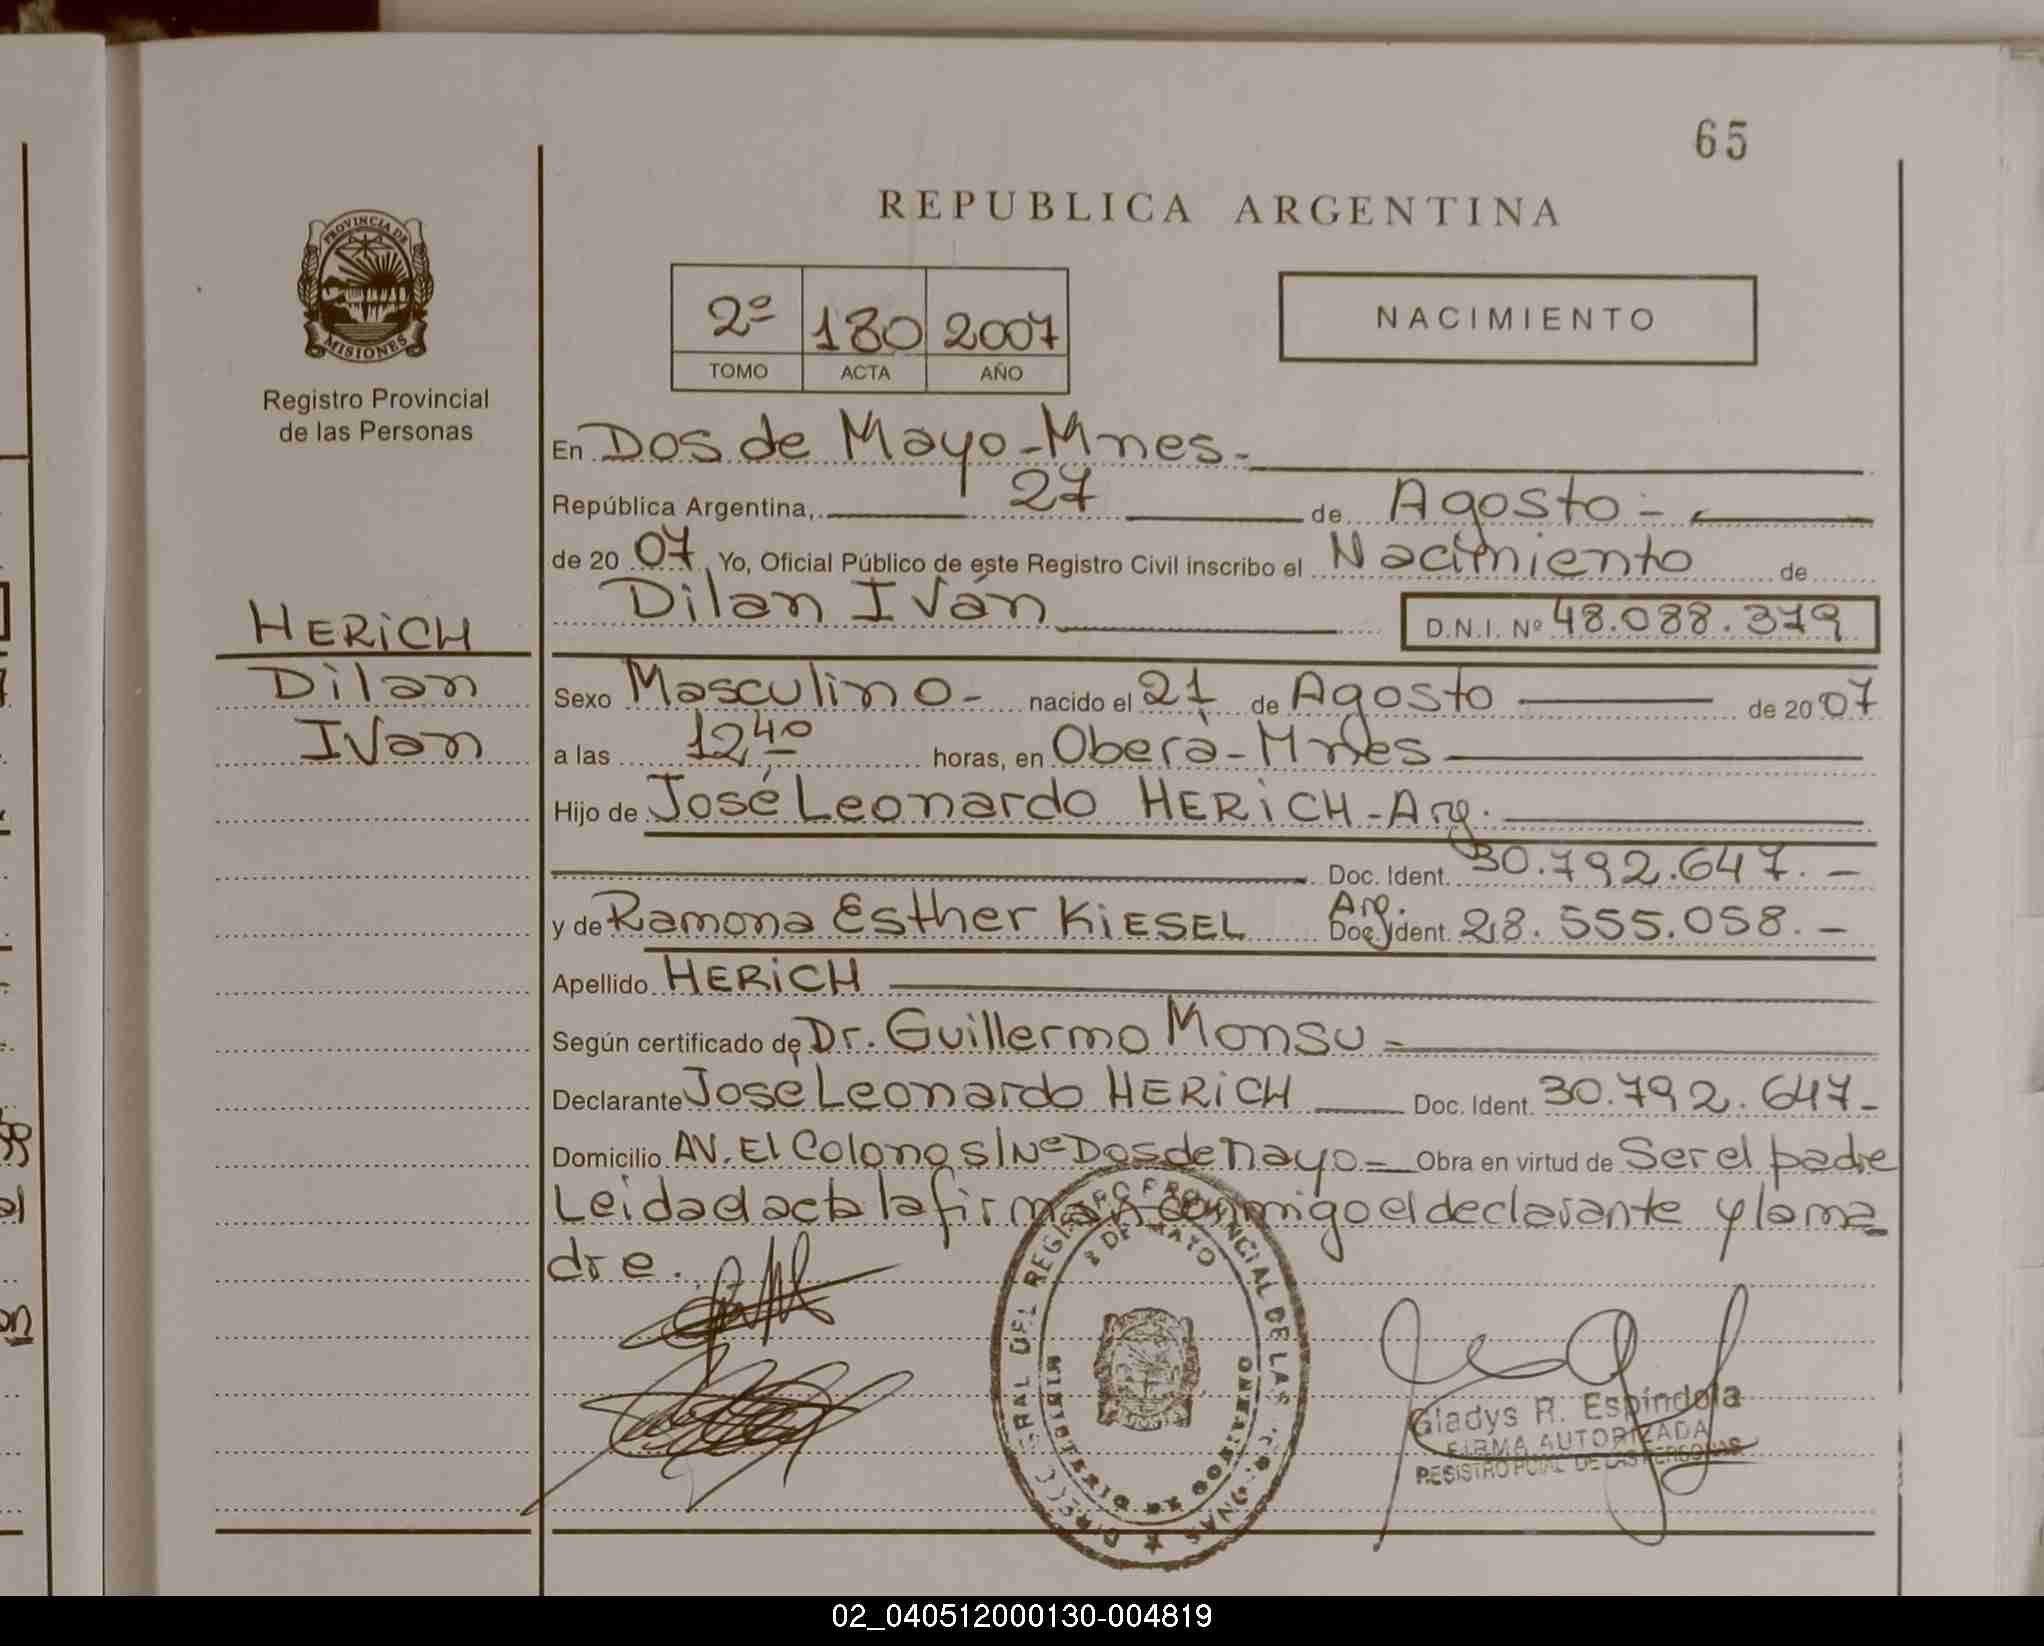 65
REPUBLICA ARGENTINA
PROVINCIA DE
MISIONES
Registro Provincial
de las Personas
2º 180 2007
TOMO ACTA AÑO
NACIMIENTO
En Dos de Mayo - Mnes. -
República Argentina, 27 de Agosto -
de 20 07. Yo, Oficial Público de este Registro Civil inscribo el Nacimiento de
Dilan Iván D.N.I. Nº 48.088.379
HERiCH
Dilan
Ivan
Sexo Masculino - nacido el 21 de Agosto de 20 07
a las 12 40 horas, en Oberá - Mnes
Hijo de José Leonardo HERiCH - Arg.
Doc. Ident. 30.792.647. -
y de Ramona Esther KiESEL Arg. Doc. Ident. 28.555.058. -
Apellido HERiCH
Según certificado de Dr. Guillermo Monsu -
Declarante José Leonardo HERiCH Doc. Ident. 30.792.647 -
Domicilio AV. El Colono s/Nº Dos de Mayo - Obra en virtud de Ser el padre
Leida el acta la firman conmigo el declarante y la ma
dre.
REGISTRO PROVINCIAL DE LAS
2 DE MAYO
Gladys R. Espíndola
FIRMA AUTORIZADA
REGISTRO PCIAL DE LAS PERSONAS
02_040512000130-004819